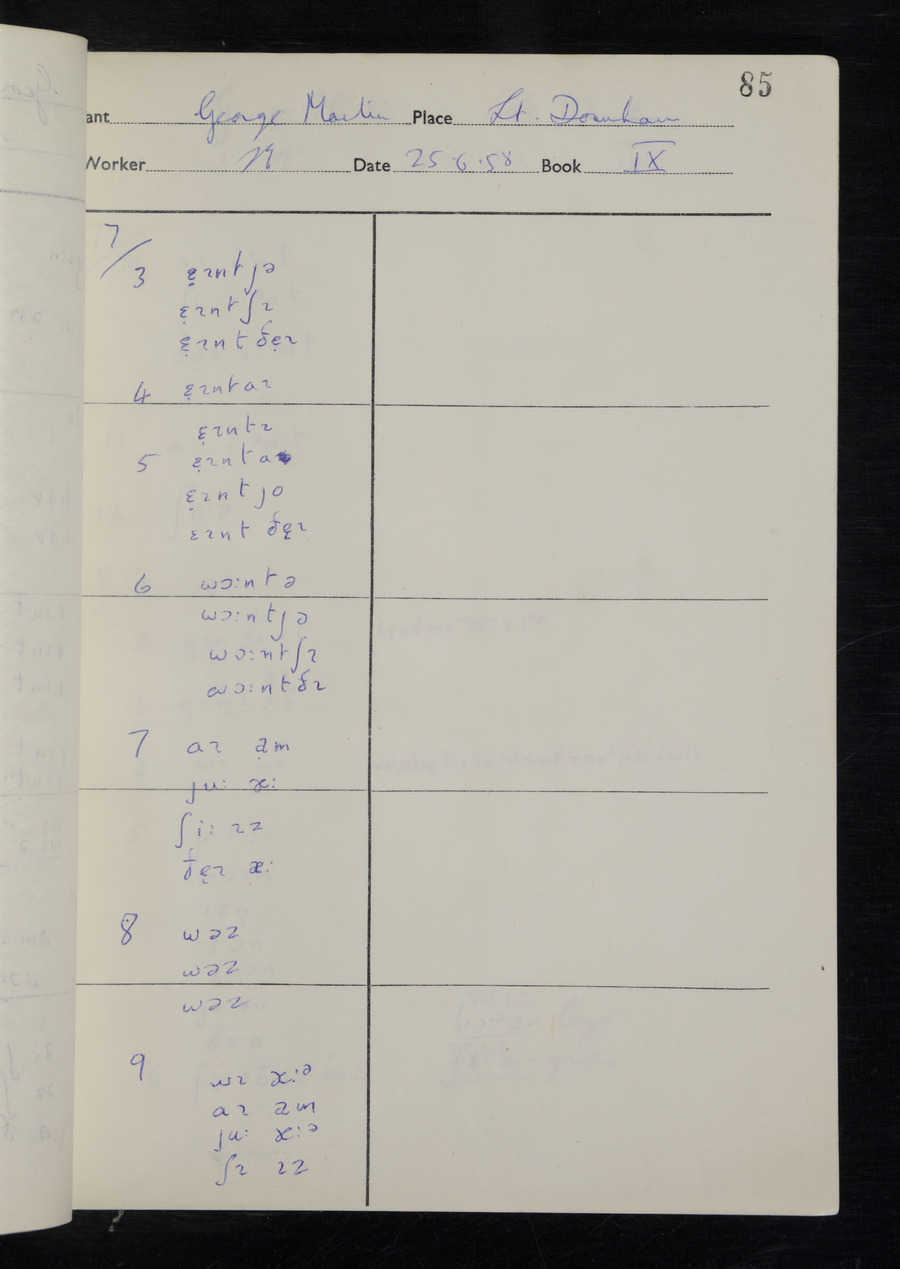 85
ant George Martin Place Lt. Downham
Worker Date 25.6.58 Book IX
7/
3 ɛ̣ɪntjə
ɛ̣ɪntʃɪ
ɛ̣ɪnt ðɛ̣ɪ
4 ɛ̣ɪntaɪ
ɛ̣ɪntɪ
5 ɛ̣ɪnta
ɛ̣ɪntjə
ɛɪnt ðɛ̣ɪ
6 wɔ:ntə
wɔ:ntjə
wɔ:ntʃɪ
wɔ:ntðɪ
7 aɪ am
ju: æ:
ʃi: ɪz
ðɛ̣ɪ æ:
8 wəz
wəz
wəz
9 wɪ æ:ə
aɪ am
ju: æ:ə
ʃɪ ɪz